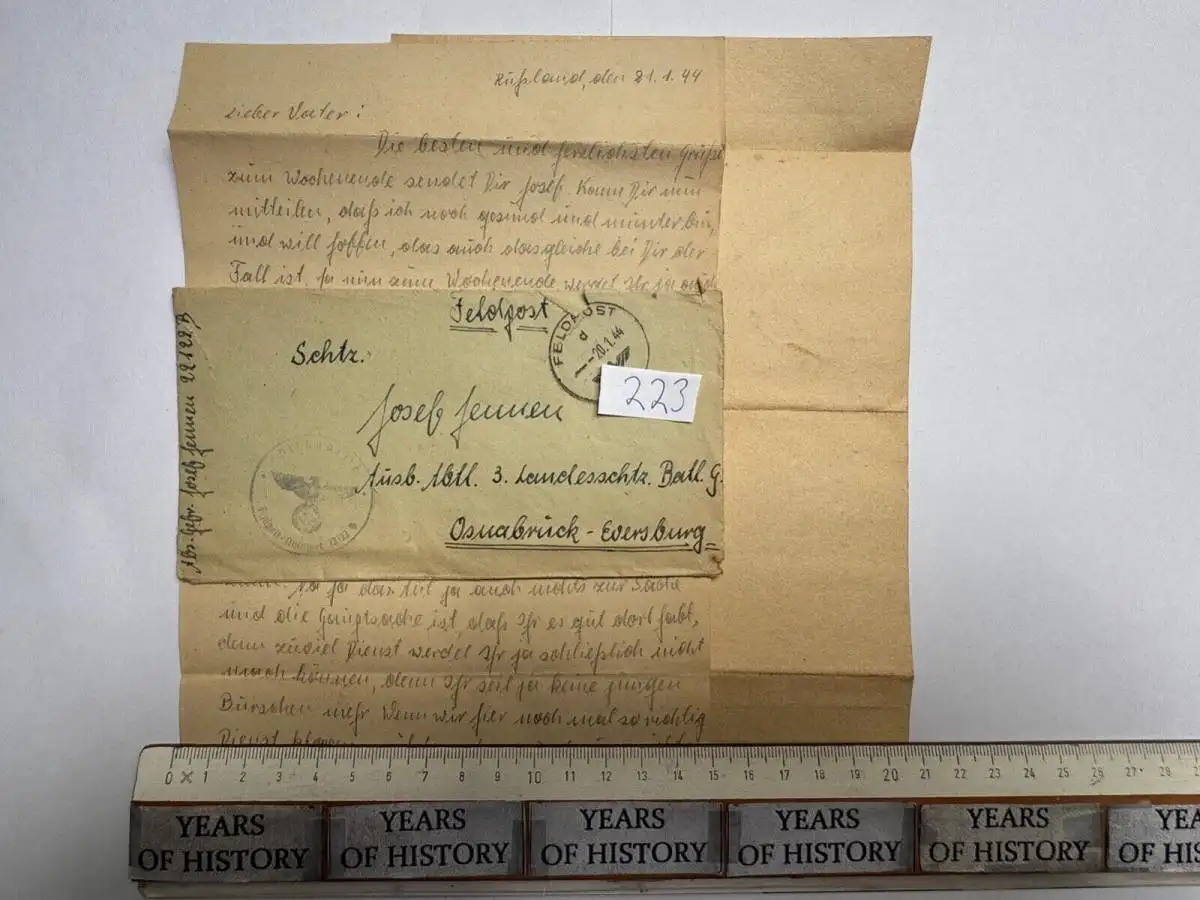 Rußland, den 21.1.44
Lieber Vater!
Die besten und herzlichsten Grüße
zum Wochenende sendet Dir Josef. Kann Dir nun
mitteilen, daß ich noch gesund und munter bin,
und will hoffen, das auch dasgleiche bei Dir der
Fall ist. Ja nun zum Wochenende werdet Ihr ja auch
Feldpost
FELDPOST
d
--20.1.44
223
Schtz.
Josef Jennen
Ausb. Abtl. 3. Landesschtz. Batl. G.
Osnabrück-Eversburg
Abs. Gefr. Josef Jennen 22122 B
Na ja das tut ja auch nichts zur Sache
und die Hauptsache ist, daß Ihr es gut dort habt,
denn zuviel Dienst werdet Ihr ja schließlich nicht
mach können, denn Ihr seit ja keine jungen
Burschen mehr. Wenn wir hier noch mal so richtig
Dienst
0 1 2 3 4 5 6 7 8 9 10 11 12 13 14 15 16 17 18 19 20 21 22 23 24 25 26 27 28
YEARS OF HISTORY YEARS OF HISTORY YEARS OF HISTORY YEARS OF HISTORY YEARS OF HISTORY